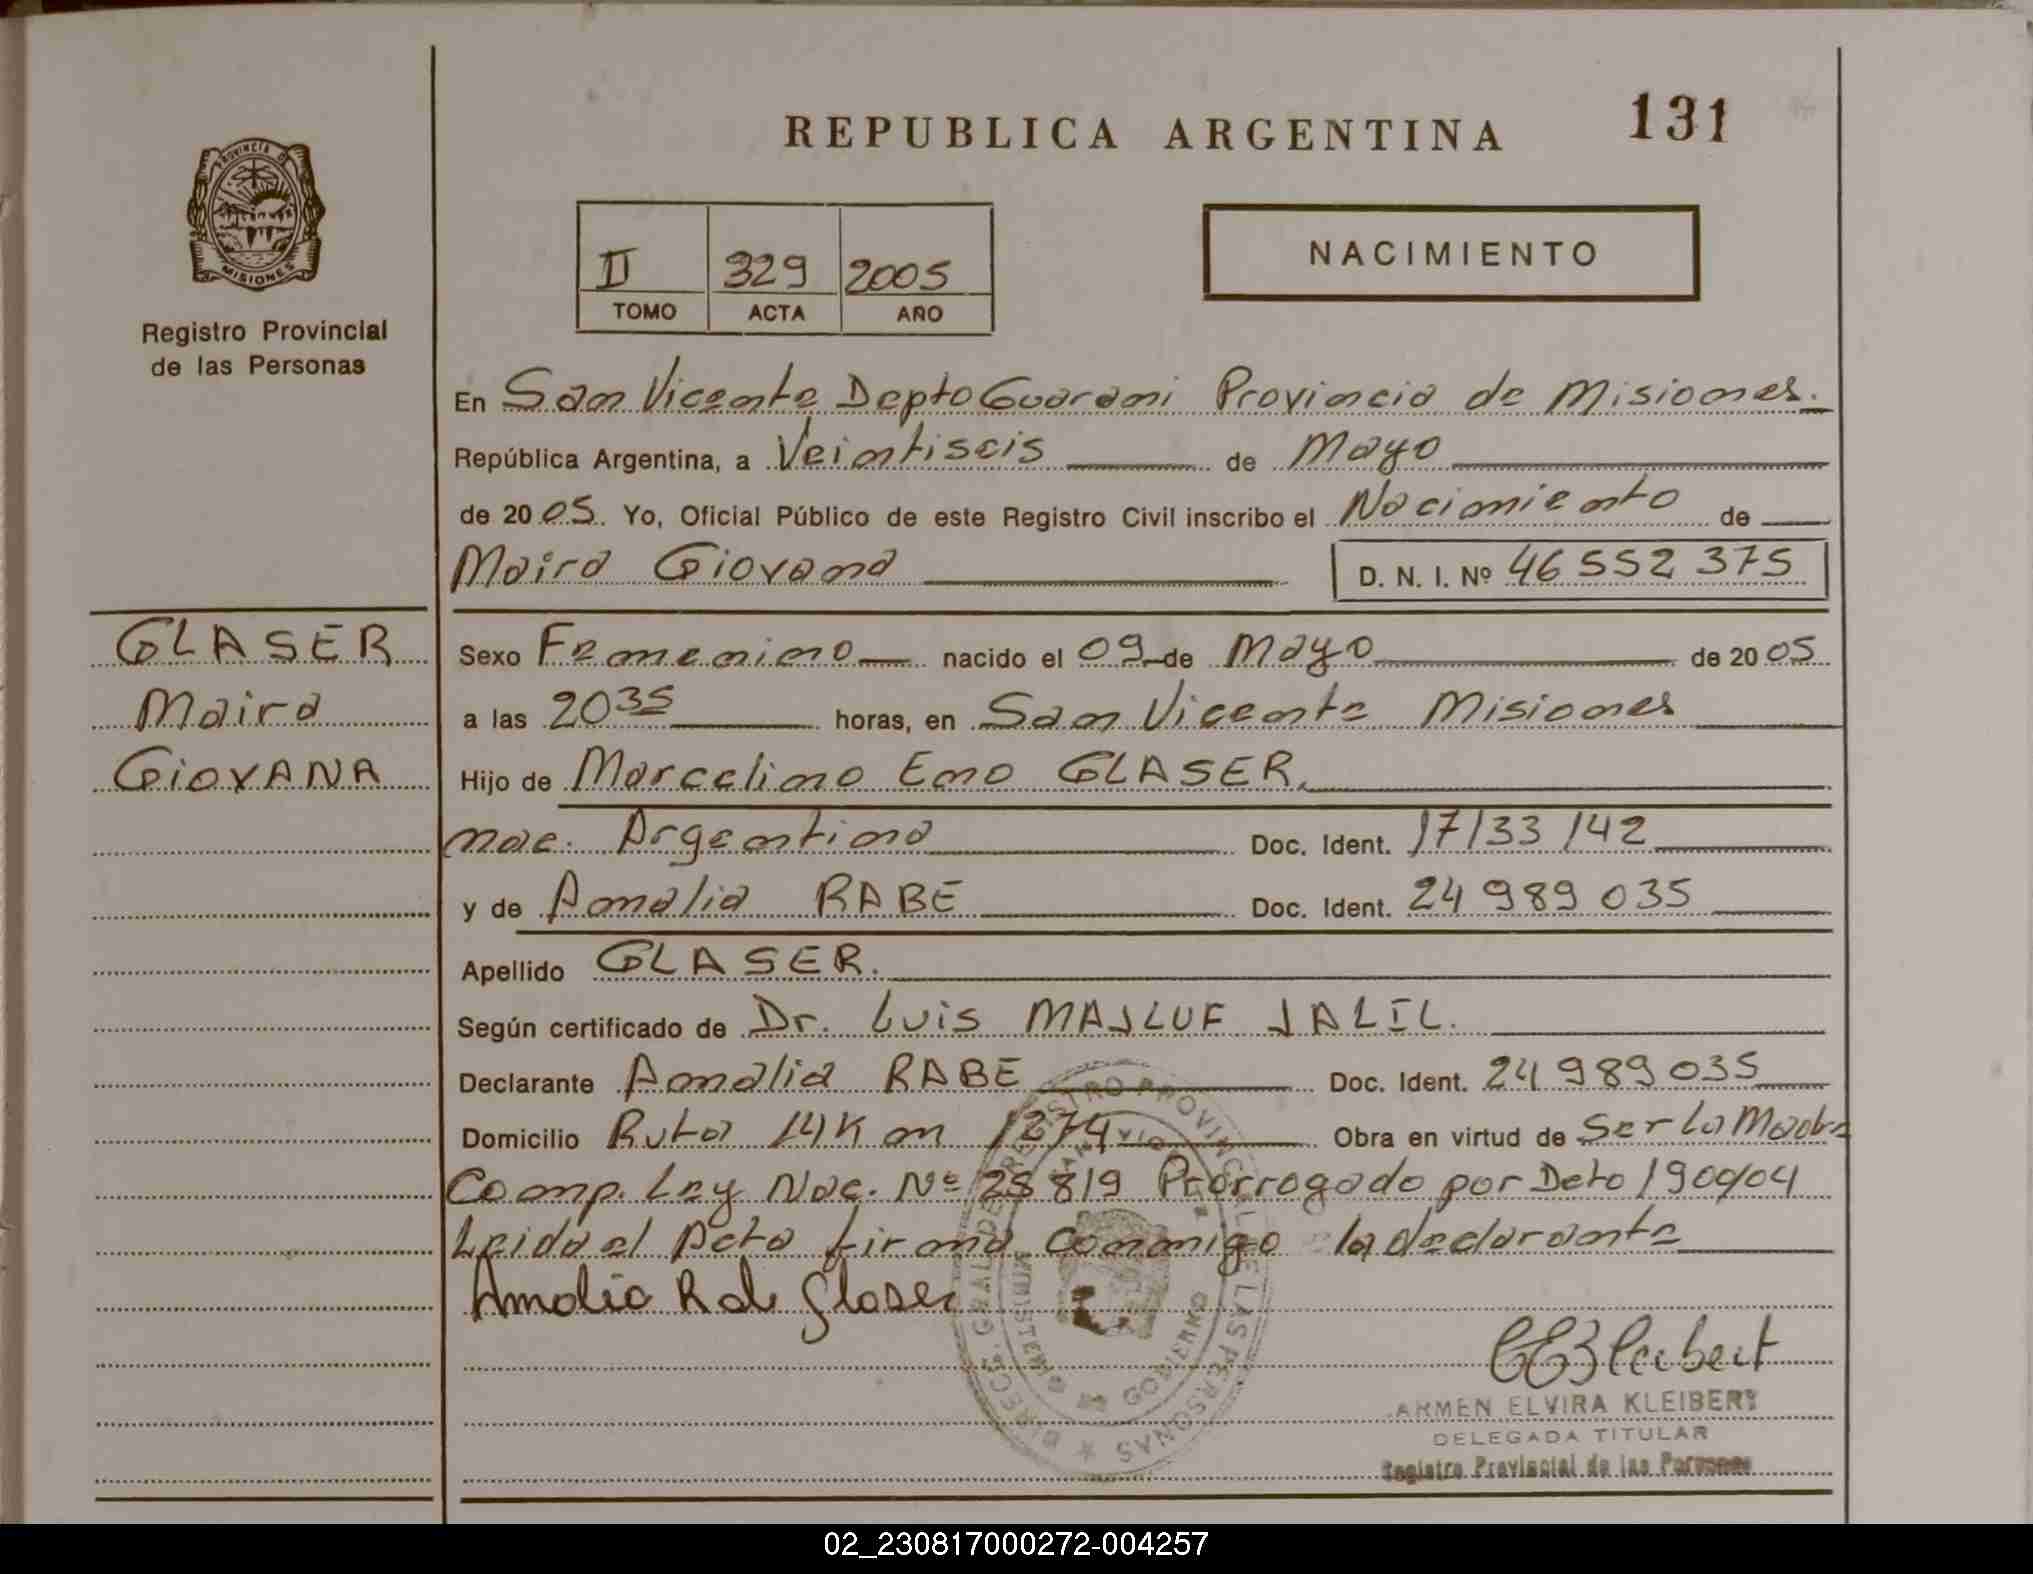 REPUBLICA ARGENTINA
131
PROVINCIA DE
MISIONES
Registro Provincial
de las Personas
II 329 2005
TOMO ACTA AÑO
NACIMIENTO
En San Vicente Depto Guarani Provincia de Misiones.
República Argentina, a Veintiseis de Mayo
de 2005. Yo, Oficial Público de este Registro Civil inscribo el Nacimiento de
Maira Giovana D. N. I. Nº 46 552 375
GLASER
Maira
GiovANA
Sexo Femenino nacido el 09 de Mayo de 2005
a las 20 35 horas, en San Vicente Misiones
Hijo de Marcelino Eno GLASER.
nac. Argentina Doc. Ident. 17/33/42
y de Amalia RABE Doc. Ident. 24 989 035
Apellido GLASER.
Según certificado de Dr. Luis MAJLUF JALIL.
Declarante Amalia RABE Doc. Ident. 24 989 035
Domicilio Ruta 14 Km 1274 Obra en virtud de Ser La Madre
Comp. Ley Nac. Nº 25 819 Prorrogado por Dcto 1900/04
Leida el Acta firma conmigo la declarante
Amalia Rabe Glaser
DIREC. GRAL DE REGISTRO PROVINCIAL DE LAS PERSONAS
MINISTERIO GOBIERNO
ARMEN ELVIRA KLEIBERT
DELEGADA TITULAR
Registro Provincial de las Personas
02_230817000272-004257